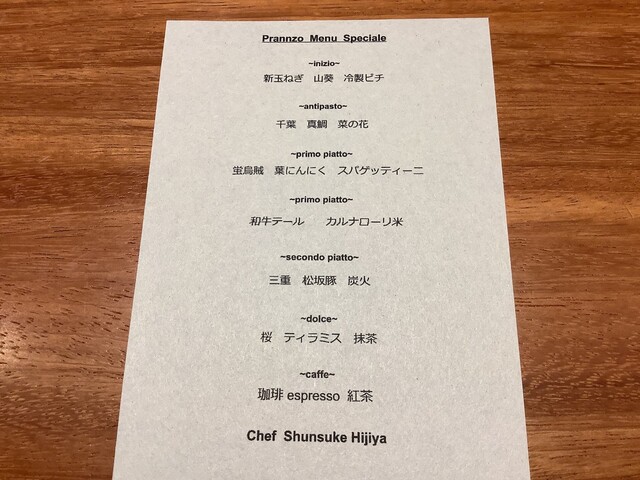 Prannzo Menu Speciale
~inizio~
新玉ねぎ 山葵 冷製ピチ
~antipasto~
千葉 真鯛 菜の花
~primo piatto~
蛍烏賊 葉にんにく スパゲッティーニ
~primo piatto~
和牛テール カルナローリ米
~secondo piatto~
三重 松坂豚 炭火
~dolce~
桜 ティラミス 抹茶
~caffe~
珈琲 espresso 紅茶
Chef Shunsuke Hijiya